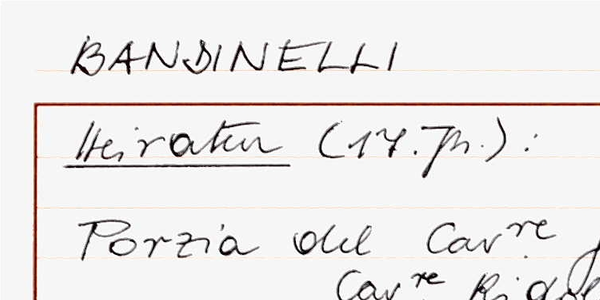 BANDINELLI
Heiraten (17. Jh.):
Porzia del Cavre
Cavre